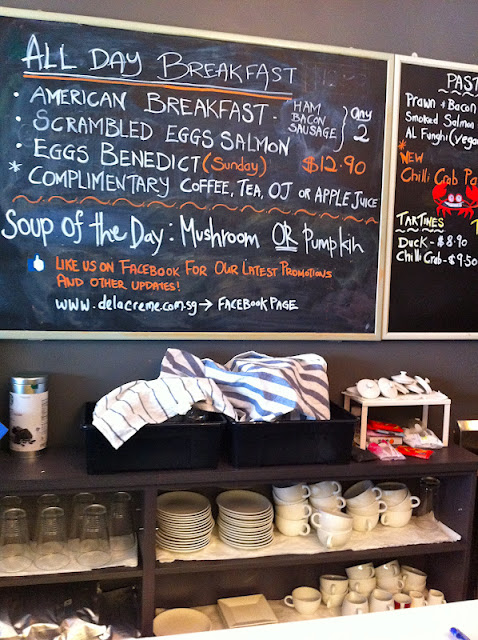 ALL DAY BREAKFAST
• AMERICAN BREAKFAST - HAM BACON SAUSAGE } any 2
• SCRAMBLED EGGS SALMON
• EGGS BENEDICT (Sunday) $12.90
* COMPLIMENTARY COFFEE, TEA, OJ OR APPLE JUICE
Soup of the Day: Mushroom OR Pumpkin
LIKE US ON FACEBOOK FOR OUR LATEST PROMOTIONS
AND OTHER UPDATES!
www.delacreme.com.sg → FACEBOOK PAGE
PAST
Prawn + Bacon
Smoked Salmon
AL Funghi (vega
* NEW
Chilli Crab Pa
TARTINES
Duck - $8.90
Chilli Crab - $9.50